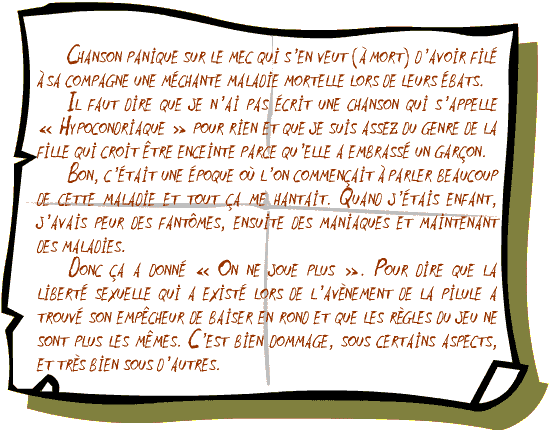 Chanson panique sur le mec qui s'en veut (à mort) d'avoir filé
à sa compagne une méchante maladie mortelle lors de leurs ébats.
Il faut dire que je n'ai pas écrit une chanson qui s'appelle
« Hypocondriaque » pour rien et que je suis assez du genre de la
fille qui croit être enceinte parce qu'elle a embrassé un garçon.
Bon, c'était une époque où l'on commençait à parler beaucoup
de cette maladie et tout ça me hantait. Quand j'étais enfant,
j'avais peur des fantômes, ensuite des maniaques et maintenant
des maladies.
Donc ça a donné « On ne joue plus ». Pour dire que la
liberté sexuelle qui a existé lors de l'avènement de la pilule a
trouvé son empêcheur de baiser en rond et que les règles du jeu ne
sont plus les mêmes. C'est bien dommage, sous certains aspects,
et très bien sous d'autres.